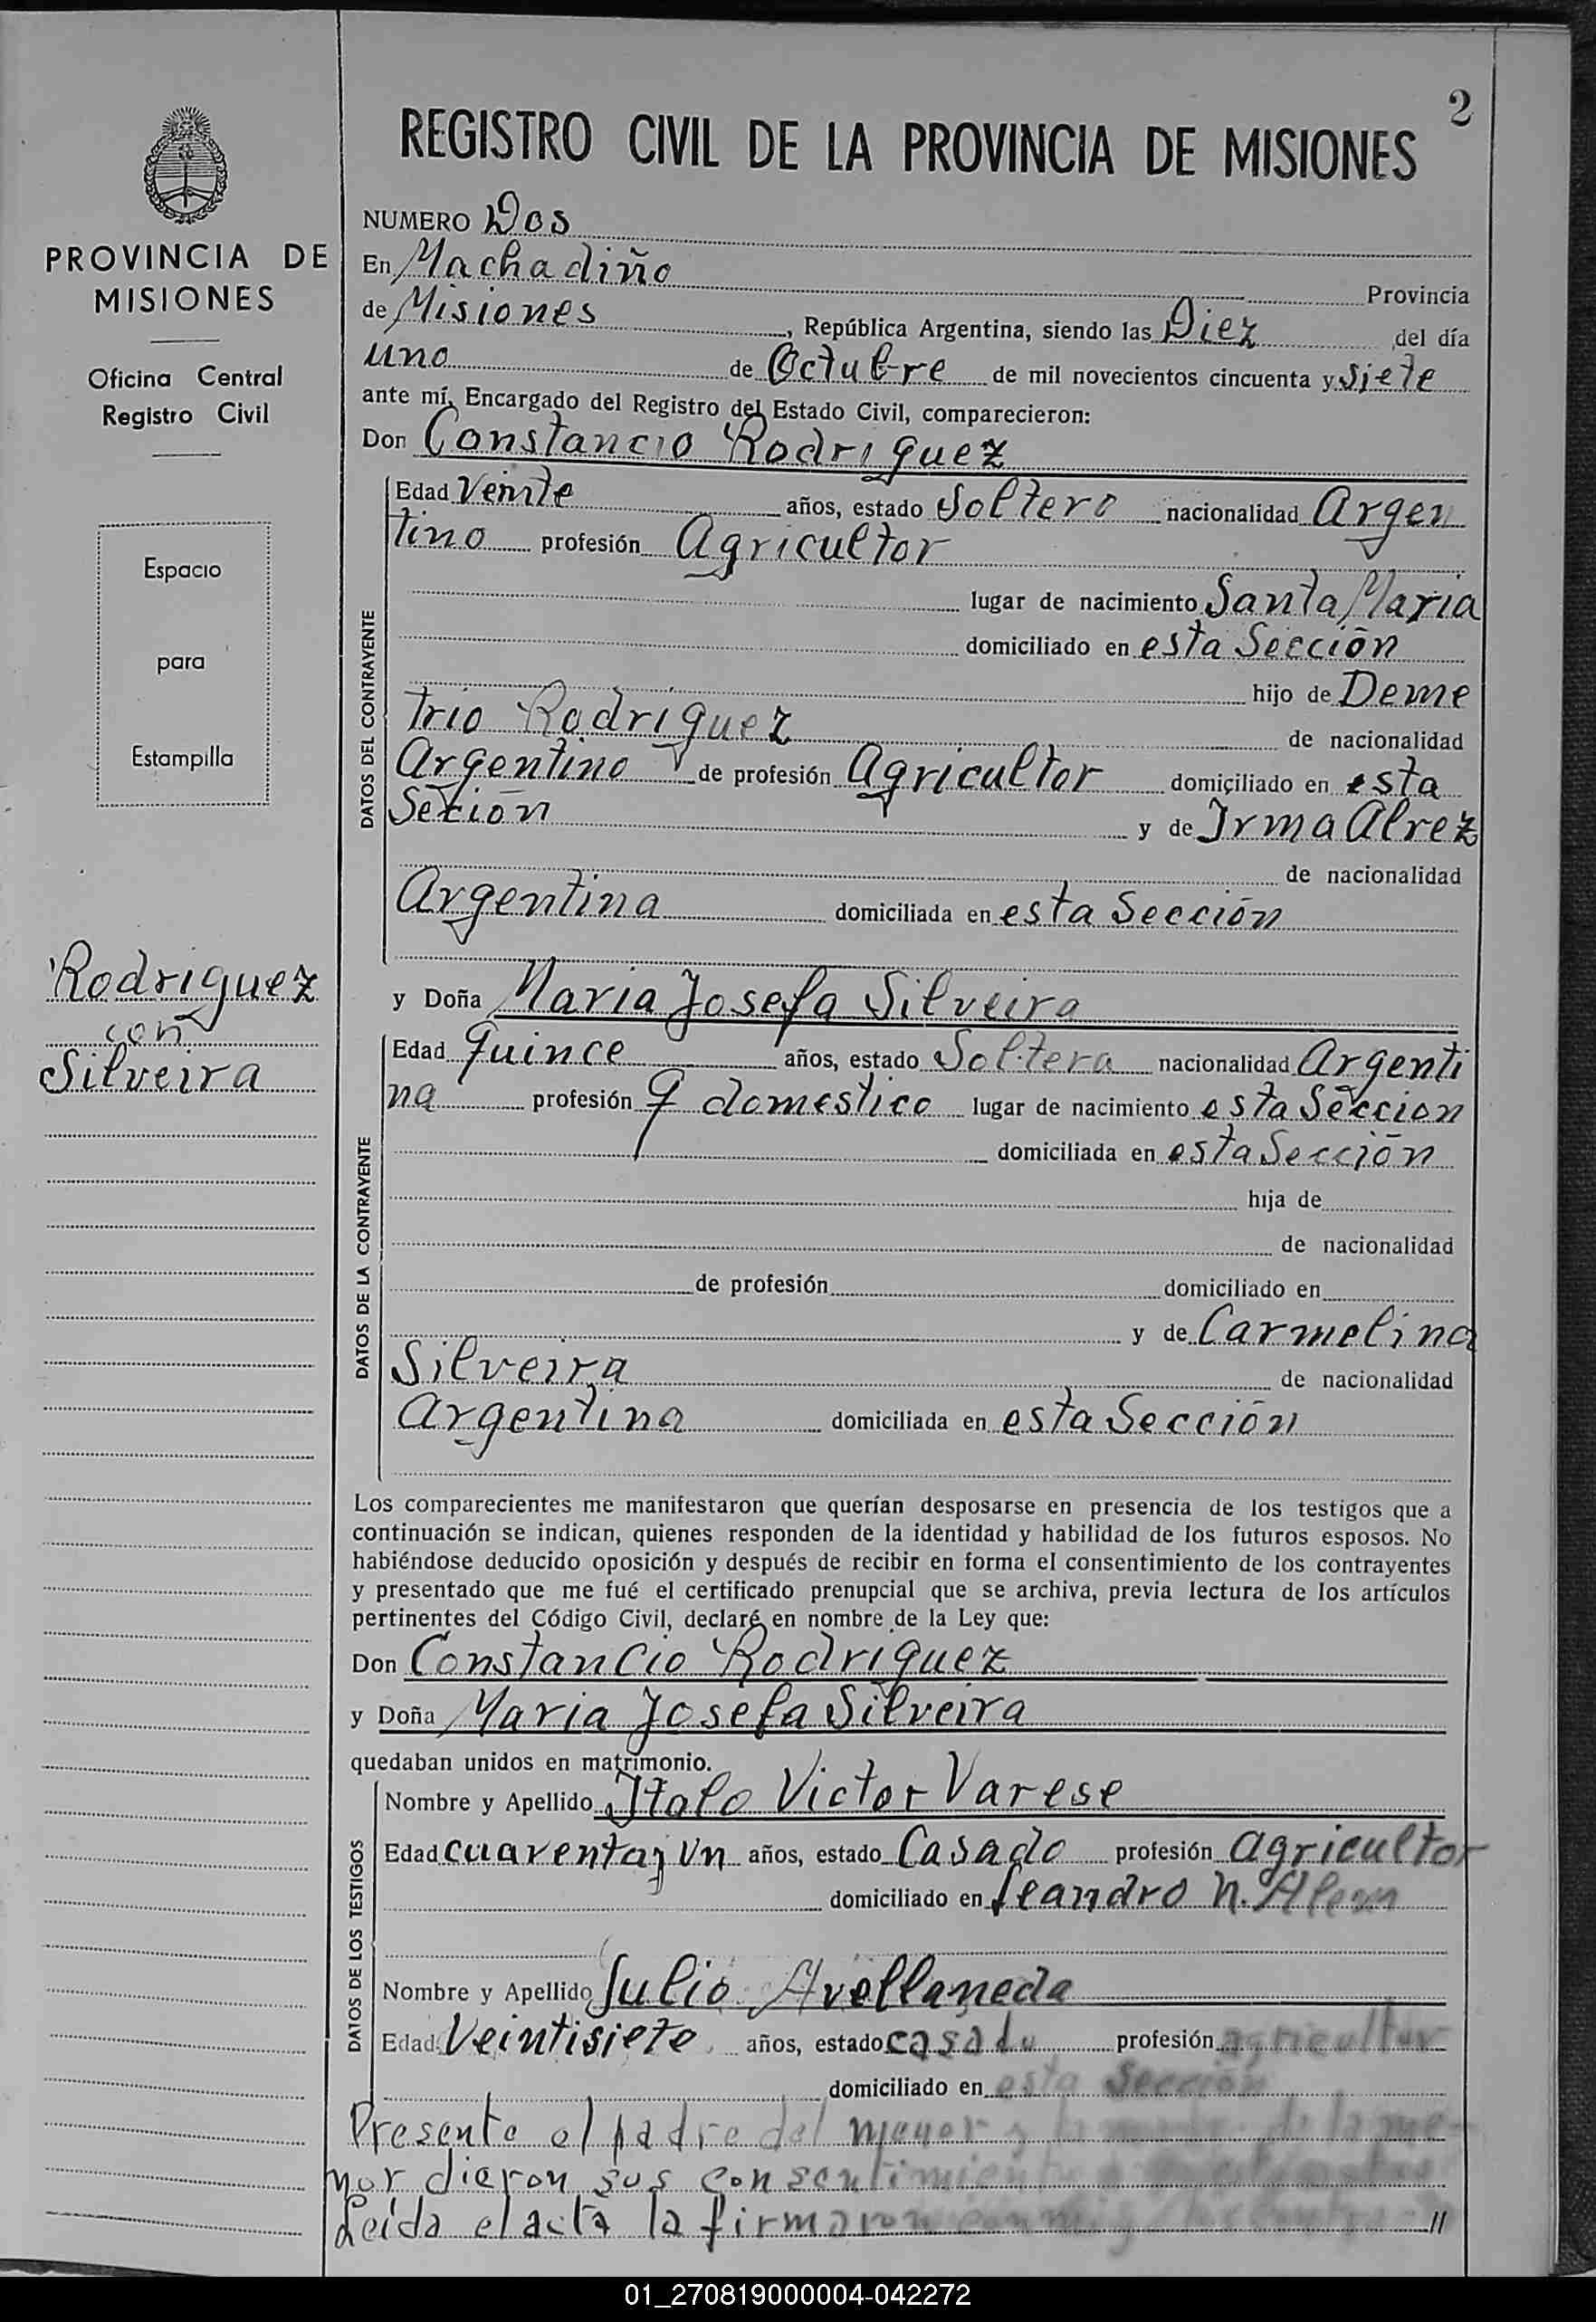 2
REGISTRO CIVIL DE LA PROVINCIA DE MISIONES
PROVINCIA DE
MISIONES
Oficina Central
Registro Civil
Espacio
para
Estampilla
Rodriguez
con
Silveira
NUMERO Dos
En Machadiño Provincia
de Misiones, República Argentina, siendo las Diez del día
uno de Octubre de mil novecientos cincuenta y siete
ante mí, Encargado del Registro del Estado Civil, comparecieron:
Don Constancio Rodriguez
DATOS DEL CONTRAYENTE
Edad Veinte años, estado Soltero nacionalidad Argen
tino profesión Agricultor
lugar de nacimiento Santa Maria
domiciliado en esta Sección
hijo de Deme
trio Rodriguez de nacionalidad
Argentino de profesión Agricultor domiciliado en esta
Seción y de Irma Alrez
de nacionalidad
Argentina domiciliada en esta Sección
y Doña Maria Josefa Silveira
DATOS DE LA CONTRAYENTE
Edad quince años, estado Soltera nacionalidad Argenti
na profesión q domestico lugar de nacimiento esta Sección
domiciliada en esta Sección
hija de
de nacionalidad
de profesión domiciliado en
y de Carmelina
Silveira de nacionalidad
Argentina domiciliada en esta Sección
Los comparecientes me manifestaron que querían desposarse en presencia de los testigos que a
continuación se indican, quienes responden de la identidad y habilidad de los futuros esposos. No
habiéndose deducido oposición y después de recibir en forma el consentimiento de los contrayentes
y presentado que me fué el certificado prenupcial que se archiva, previa lectura de los artículos
pertinentes del Código Civil, declaré en nombre de la Ley que:
Don Constancio Rodriguez
y Doña Maria Josefa Silveira
quedaban unidos en matrimonio.
DATOS DE LOS TESTIGOS
Nombre y Apellido Italo Victor Varese
Edad cuarenta y Un años, estado Casado profesión agricultor
domiciliado en Leandro N. Alem
Nombre y Apellido Julio Avellaneda
Edad Veintisiete años, estado casado profesión agricultor
domiciliado en esta Sección
Presente el padre del menor y la madre de la me-
nor dieron sus consentimiento
Leída el acta la firmaron conmigo //
01_270819000004-042272